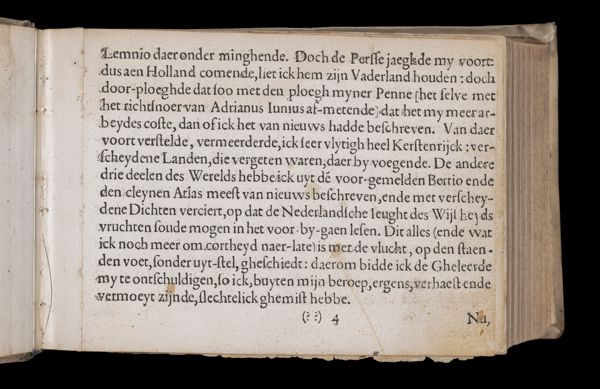 Lemnio daer onder minghende. Doch de Persse jaeghde my voort:
dus aen Holland comende, liet ick hem zijn Vaderland houden: doch
door-ploeghde dat soo met den ploegh myner Penne [het selve met
het richtsnoer van Adrianus Iunius af-metende] dat het my meer ar-
beydes coste, dan of ick het van nieuws hadde beschreven. Van daer
voort verstelde, vermeerderde, ick seer vlytigh heel Kerstenrijck: ver-
scheydene Landen, die vergeten waren, daer by voegende. De andere
drie deelen des Werelds hebbe ick uyt dē voor-gemelden Bertio ende
den cleynen Atlas meest van nieuws beschreven, ende met verschey-
dene Dichten verciert, op dat de Nederlandsche Ieught des Wijsheyds
vruchten soude mogen in het voor-by-gaen lesen. Dit alles (ende wat
ick noch meer om cortheyd naer-late) is met de vlucht, op den staen-
den voet, sonder uyt-stel, gheschiedt: daerom bidde ick de Gheleerde
my te ontschuldigen, so ick, buyten mijn beroep, ergens, verhaest ende
vermoeyt zijnde, slechtelick ghemist hebbe.
(??) 4 Nu,